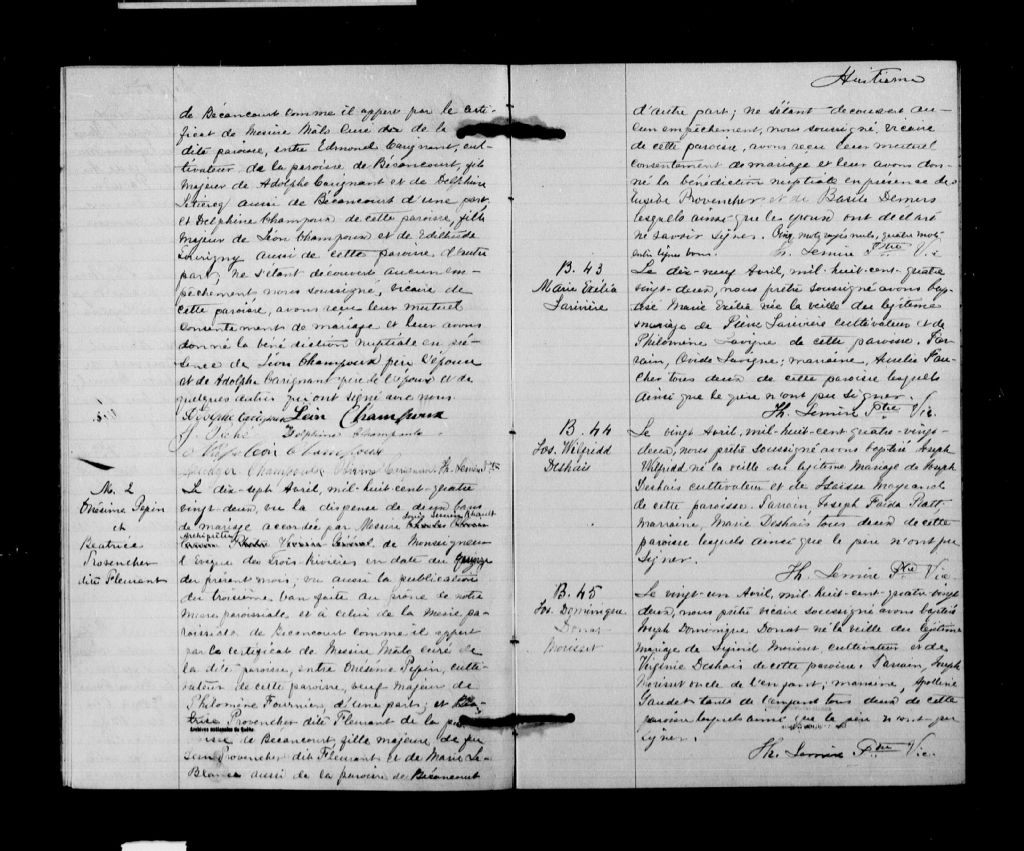 de Bécancourt comme il appert par le certi-
ficat de Messire Mâlo Curé de la
dite paroisse, entre Edmond Carignant, cul-
tivateur de la paroisse de Bécancourt, fils
Majeur de Adolphe Carignant et de Delphine
aussi de Bécancourt d'une part,
et Delphine Champoux de cette paroisse, fille
Majeur de Léon Champoux et de
aussi de cette paroisse, d'autre
part; ne s'étant découvert aucun em-
pêchement nous soussigné, vicaire de
cette paroisse, avons reçu leur mutuel
consentement de mariage et leur avons
donné la bénédiction nuptiale en pré-
sence de Léon Champoux père de l'épouse
et de Adolphe Carignant père de l'époux et de
quelques autres qui ont signé avec nous
Adolphe Carignan Léon Champoux
Delphine Champoux
Napoléon Champoux
Carignant Th. Lemire Ptre
M. 2
Onésime Pepin
et
Beatrice
Provencher
dite Fleurant
Le dix-sept Avril, mil-huit-cent-quatre
vingt-deux, vu la dispense de deux bans
de mariage accordée par Messire
Archiprêtre de Monseigneur
l'Evêque des Trois-Rivières en date du quinze
du présent mois; vu aussi la publication
du troisième ban faite au prône de notre
Messe paroissiale et à celui de la Messe pa-
roissiale de Bécancourt comme il appert
par le certificat de Messire Mâlo curé de
la dite paroisse, entre Onésime Pepin, culti-
vateur de cette paroisse, veuf majeur de
Philomène Fournier, d'une part; et Béa-
trice Provencher dite Fleurant de la pa-
Archives nationales du Québec
roisse de Bécancourt, fille majeure de feu
Provencher dit Fleurant et de Marie Le-
Blanc aussi de la paroisse de Bécancourt
Huitième
d'autre part; ne s'étant découvert au-
cun empêchement, nous soussigné, vicaire
de cette paroisse, avons reçu leur mutuel
consentement de mariage et leur avons don-
né la bénédiction nuptiale en présence de
Provencher et de Basile Demers
lesquels ainsi que les époux ont déclaré
ne savoir signer. Cinq mots rayés nuls, quatre mots
entre lignes bons. Th. Lemire Ptre Vic
B. 43
Marie Exilia
Larivière
Le dix-neuf Avril, mil-huit-cent-quatre
vingt-deux, nous prêtre soussigné avons bap-
tisé Marie Exilia née la veille du légitime
mariage de Pierre Larivière cultivateur et de
Philomène Lavigne de cette paroisse. Par-
rain, Ovide Lavigne; marraine, Aurelie Fau-
cher tous deux de cette paroisse lesquels
ainsi que le père n'ont pu signer.
Th. Lemire Ptre Vic.
B. 44
Jos. Wilfredd
Deshais
Le vingt Avril, mil-huit-cent-quatre-vingt-
deux, nous prêtre soussigné avons baptisé Joseph
Wilfredd né la veille du légitime Mariage de Joseph
Deshais cultivateur et de
de cette paroisse. Parrain, Joseph
marraine, Marie Deshais tous deux de cette
paroisse lesquels ainsi que le père n'ont pu
signer.
Th. Lemire Ptre Vic.
B. 45
Jos. Dominique
Donat
Mousset
Le vingt-un Avril, mil-huit-cent-quatre vingt
deux, nous prêtre vicaire soussigné avons baptisé
Joseph Dominique Donat né la veille du légitime
mariage de cultivateur et de
Virginie Deshais de cette paroisse. Parrain, Joseph
oncle de l'enfant; marraine, Apolline
Gaudet tante de l'enfant tous deux de cette
paroisse lesquels ainsi que le père n'ont pu
signer.
Th. Lemire Ptre Vic.